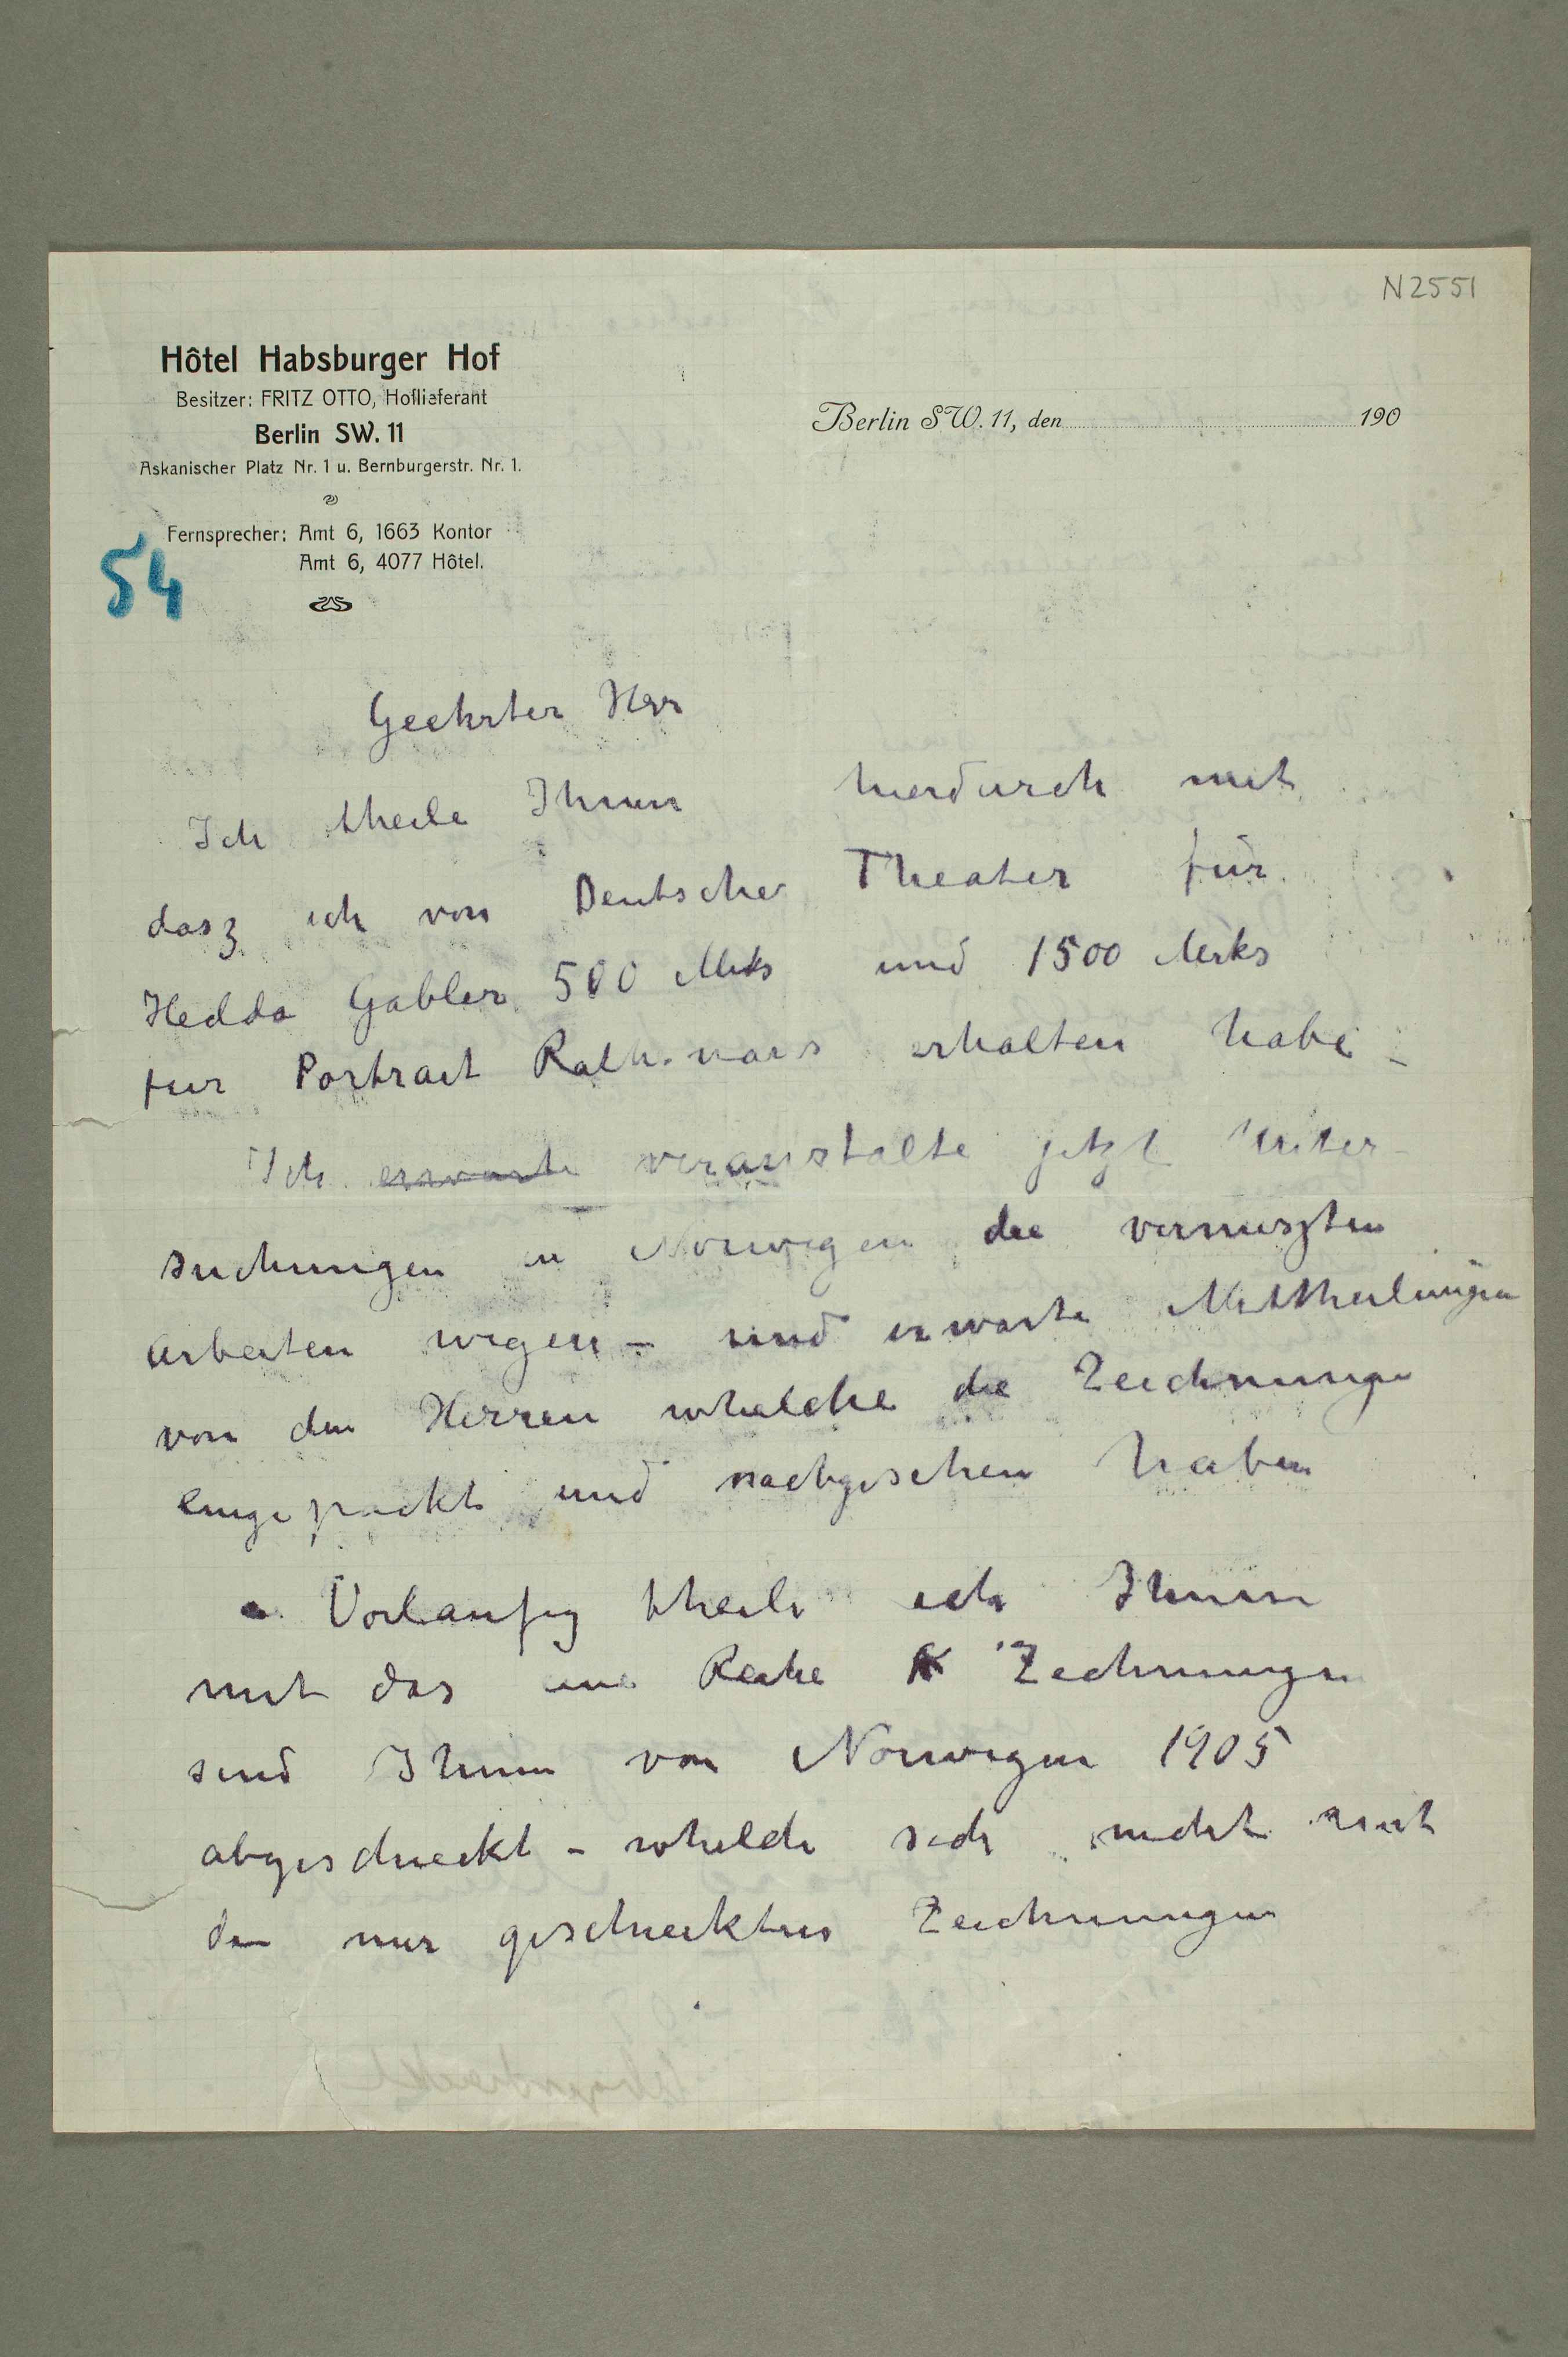 N 2551
Hôtel Habsburger Hof
Besitzer: FRITZ OTTO, Hoflieferant
Berlin SW. 11
Askanischer Platz Nr. 1 u. Bernburgerstr. Nr. 1.
Fernsprecher: Amt 6, 1663 Kontor
Amt 6, 4077 Hôtel.
Berlin SW. 11, den 190
54
Geehrter Herr
Ich theile Ihnen hierdurch mit
dasz ich von Deutsches Theater für
Hedda Gabler 500 Mks und 1500 Mrks
fur Portrait Rathenaus erhalten habe –
Ich erwarte veranstalte jetzt Unter-
suchungen in Norwegen die vermiszten
Arbeiten wegen – und erwarte Mittheilungen
von den Herren whelche die Zeichnungen
eingepackt und nachgesehen haben
Vorlaufig theile ich Ihnen
mit das eine Reihe Zeichnungen
sind Ihnen von Norwegen 1905
abgeschieckt – whelche sich nicht mit
den mir geschieckten Zeichnungen